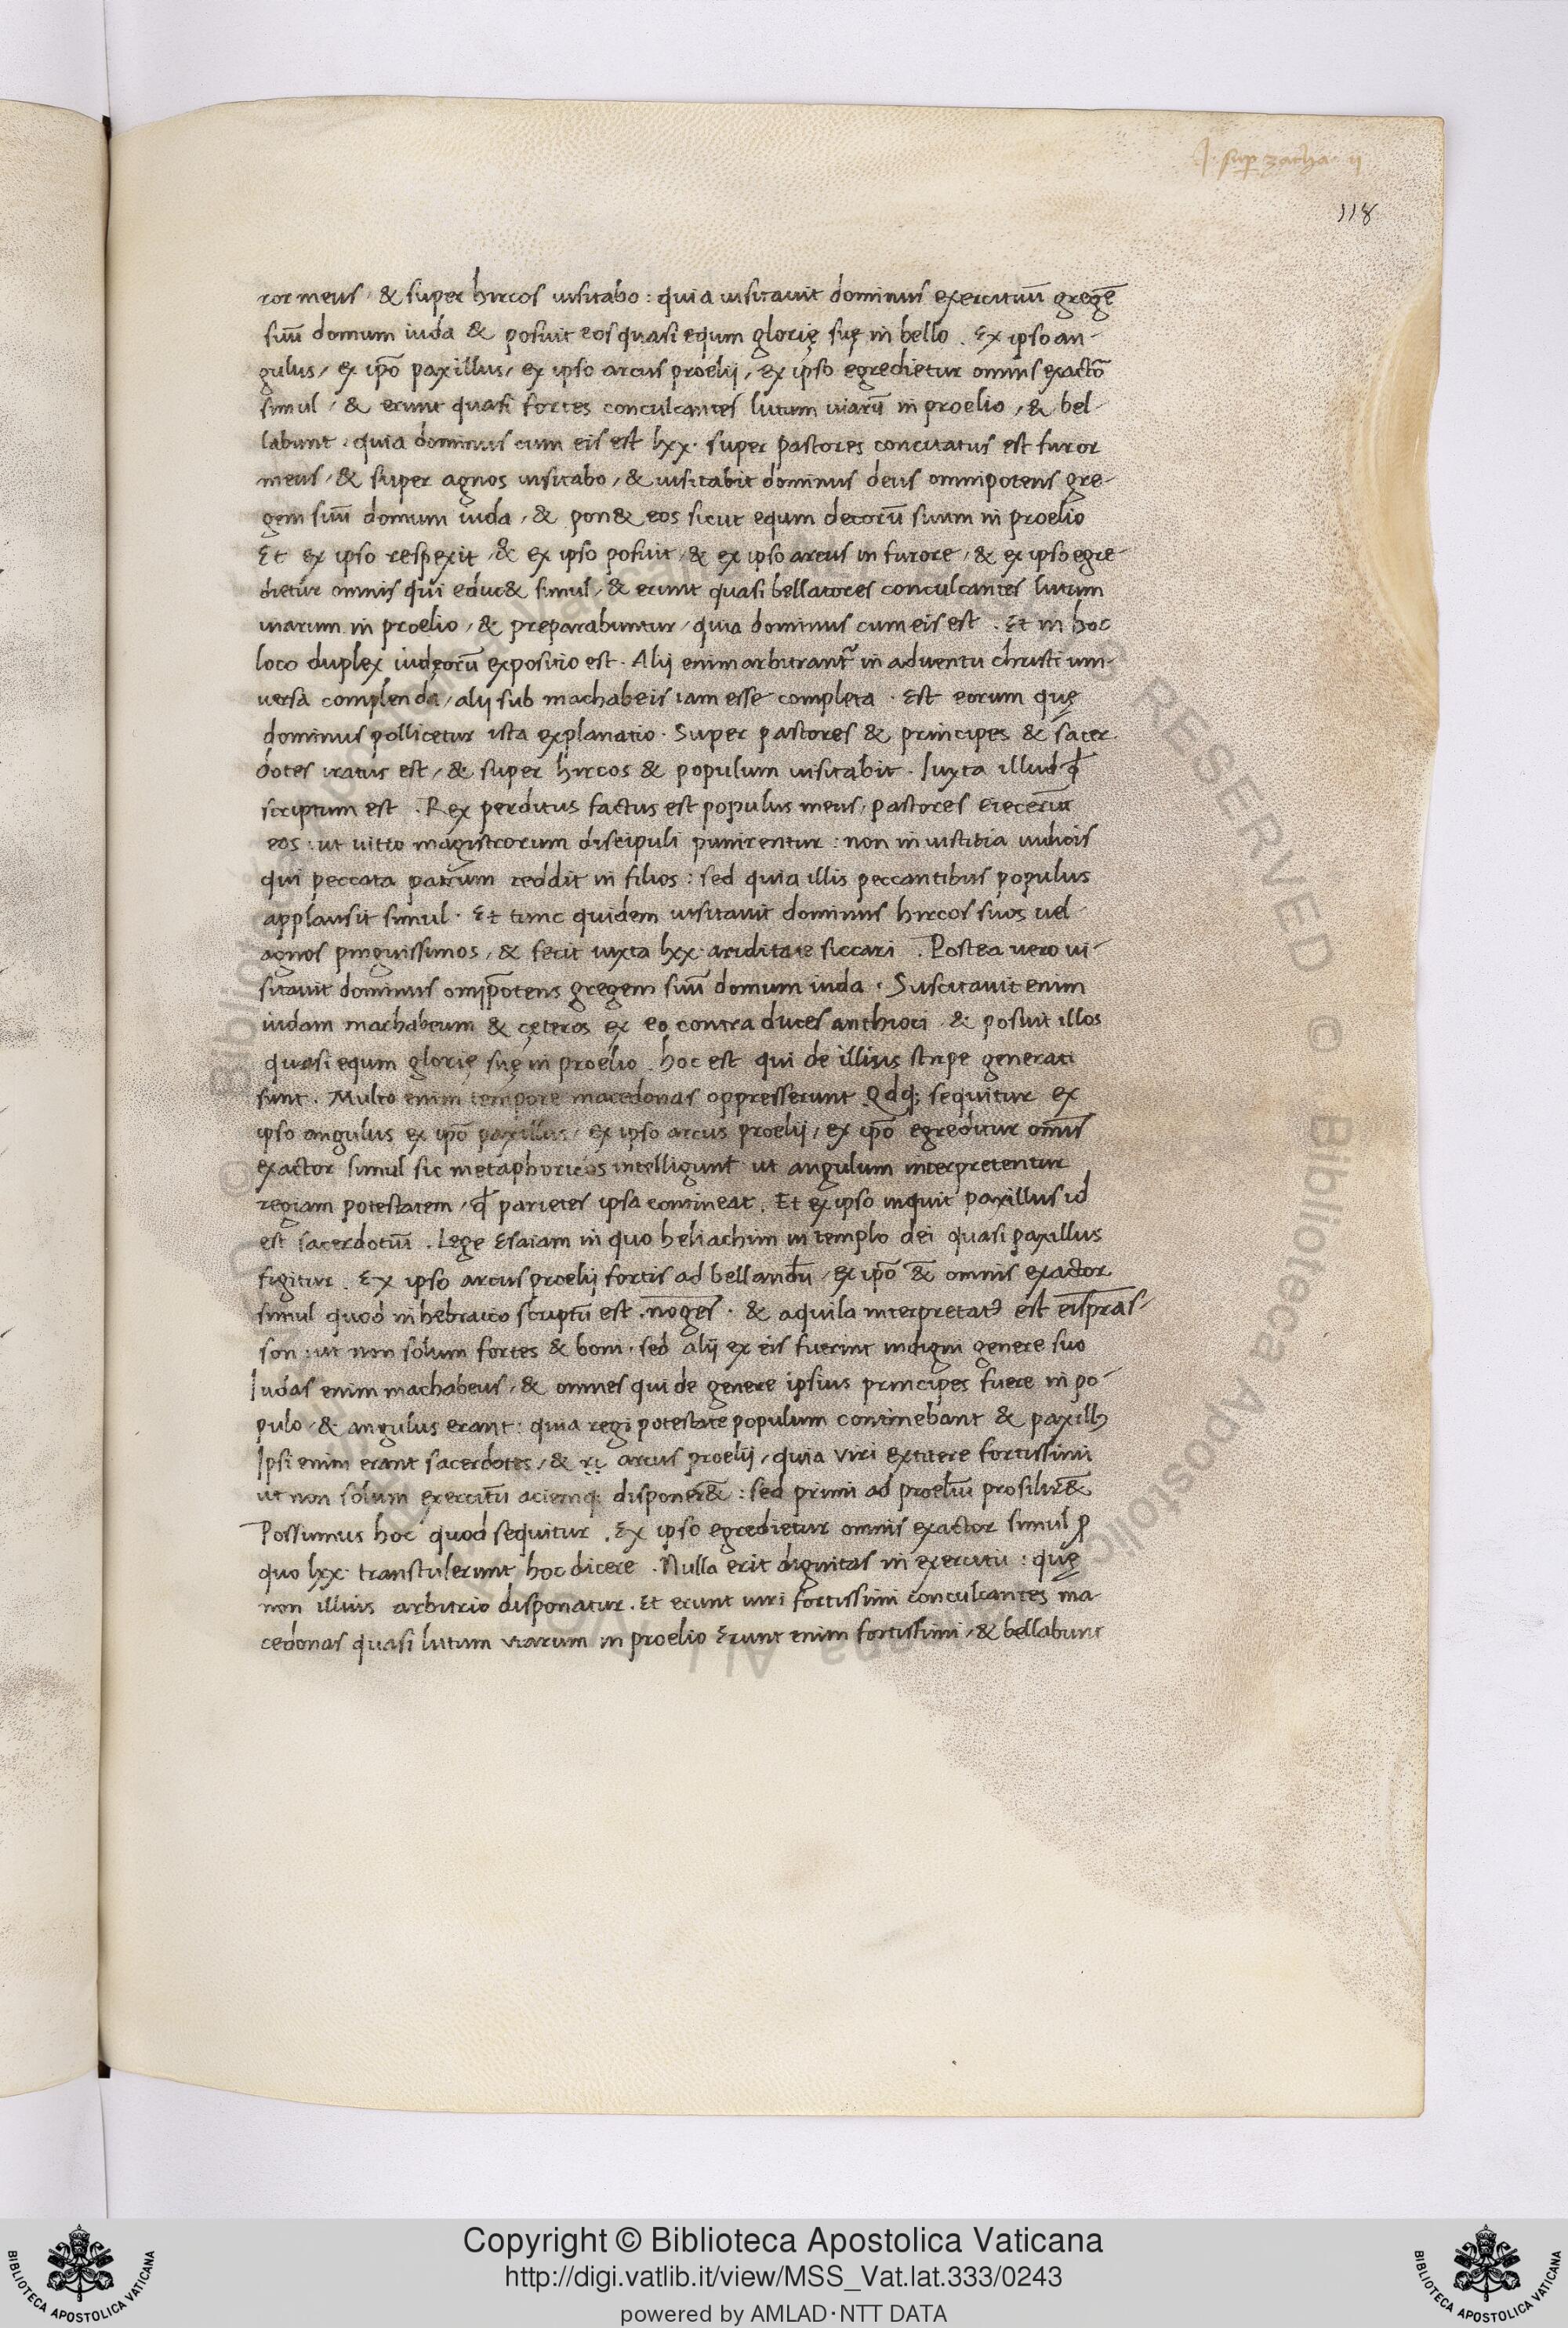 J. sup zacha. ii
118
ror meus / & super hircos uisitabo : quia uisitauit dominus exercituū gregē
suū domum iuda & posuit eos quasi equm glorię suę in bello . Ex ipso an-
gulus / ex ip̄o paxillus / ex ipso arcus proelij / ex ipso egredietur omnis exacto᷑
simul / & erunt quasi fortes conculcantes lutum uiarū in proelio / & bel-
labunt / quia dominus cum eis est lxx . super pastores concitatus est furor
meus / & super agnos uisitabo / & uisitabit dominus deus omnipotens gre-
gem suū domum iuda / & pon& eos sicut equm decorū suum in proelio
Et ex ipso respexit / & ex ipso posuit / & ex ipso arcus in furore / & ex ipso egre-
dietur omnis qui educ& simul / & erunt quasi bellatores conculcantes lutum
uiarum in proelio / & preparabuntur / quia dominus cum eis est . Et in hoc
loco duplex iudęorū expositio est . Alij enim arbitrant᷑ in aduentu christi uni-
uersa complenda / alij sub machabeis iam esse completa . Est eorum quę
dominus pollicetur ista explanatio . Super pastores & principes & sacer
dotes iratus est / & super hircos & populum uisitabit . Iuxta illud qđ
scriptum est . Rex perditus factus est populus meus / pastores eiecerūt
eos : ut uitio magistrorum discipuli punirentur : non iniustitia iudicis
qui peccata patrum reddit in filios : sed quia illis peccantibus populus
applausit simul . Et tunc quidem uisitauit dominus hircos suos uel
agnos pinguissimos / & fecit iuxta lxx ariditate siccari . Postea uero ui-
sitauit dominus omip̄otens gregem suū domum iuda . Suscitauit enim
iudam machabeum & cęteros ex eo contra duces anthioci & posuit illos
quasi equm glorię suę in proelio . hoc est qui de illius stirpe generati
sunt . Multo enim tempore macedonas oppresserunt Qdq; sequitur ex
ipso angulus ex ip̄o paxillus / ex ipso arcus proelij / ex ip̄o egreditur om̄is
exactor simul sic metaphoricos intelligunt ut angulum interpretentur
regiam potestatem / qđ parietes ipsa contineat . Et ex ipso inquit paxillus id
est sacerdotiū . Lege Esaiam in quo heliachim in templo dei quasi paxillus
figitur . Ex ipso arcus proelij fortis ad bellandū / ex ip̄o &̄ omnis exactor
simul quod in hebraico scriptū est . noges . & aquila interpretatꝰ est eisp̄ras-
son : ut non solum fortes & boni . sed alij ex eis fuerint indigni genere suo
Iudas enim machabeus / & omnes qui de genere ipsius principes fuere in po-
pulo / & angulus erant : quia regi potestate populum continebant & paxillꝫ
Ipsi enim erant sacerdotes / & arcus proelij / quia viri extitere fortissimi
ut non solum exercitū aciemq; disponer&̄ : sed primi ad proeliū prosilir&̄
Possumus hoc quod sequitur . Ex ipso egredietur omnis exactor simul ꝓ
quo lxx transtulerunt hoc dicere . Nulla erit dignitas in exercitu : quę
non illius arbitrio disponatur . Et erunt uiri fortissimi conculcantes ma-
cedonas quasi lutum viarum in proelio Erunt enim fortissimi / & bellabunt
Copyright © Biblioteca Apostolica Vaticana
http://digi.vatlib.it/view/MSS_Vat.lat.333/0243
powered by AMLAD·NTT DATA
BIBLIOTECA APOSTOLICA VATICANA
BIBLIOTECA APOSTOLICA VATICANA